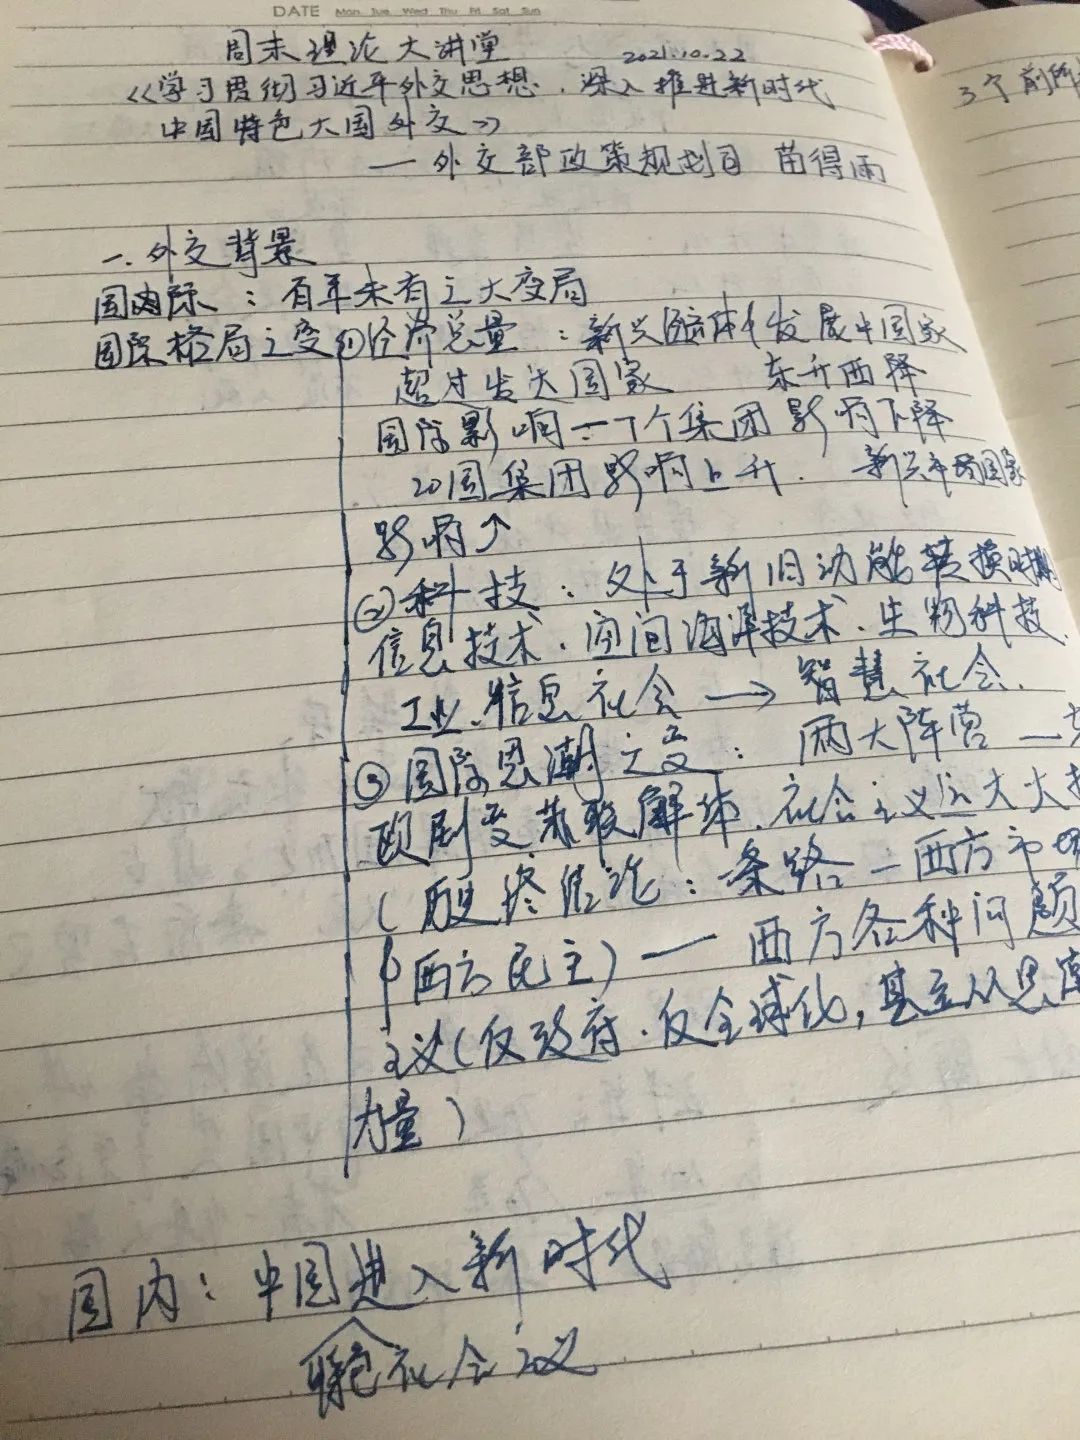 DATE Mon Tue Wed Thu Fri Sat Sun
周末理论大讲堂 2021.10.22
《学习贯彻习近平外交思想、深入推进新时代
中国特色大国外交》
— 外交部政策规划司 苗得雨
3个前所
一.外交背景
国际：百年未有之大变局
国际格局之变 ①经济总量：新兴 发展中国家
超过发达国家 东升西降
国际影响 — 7个集团影响下降
20国集团影响上升. 新兴市场国家
影响↑
②科技：处于新旧动能转换时期
信息技术、空间海洋技术、生物科技.
工业、信息社会 → 智慧社会.
③国际思潮之变：两大阵营 — 东
欧剧变苏联解体、社会主义
(历史终结论：一条路 — 西方市场
西方民主) — 西方各种问题
主义(反政府.反全球化,
力量)
国内：中国进入新时代
社会主义